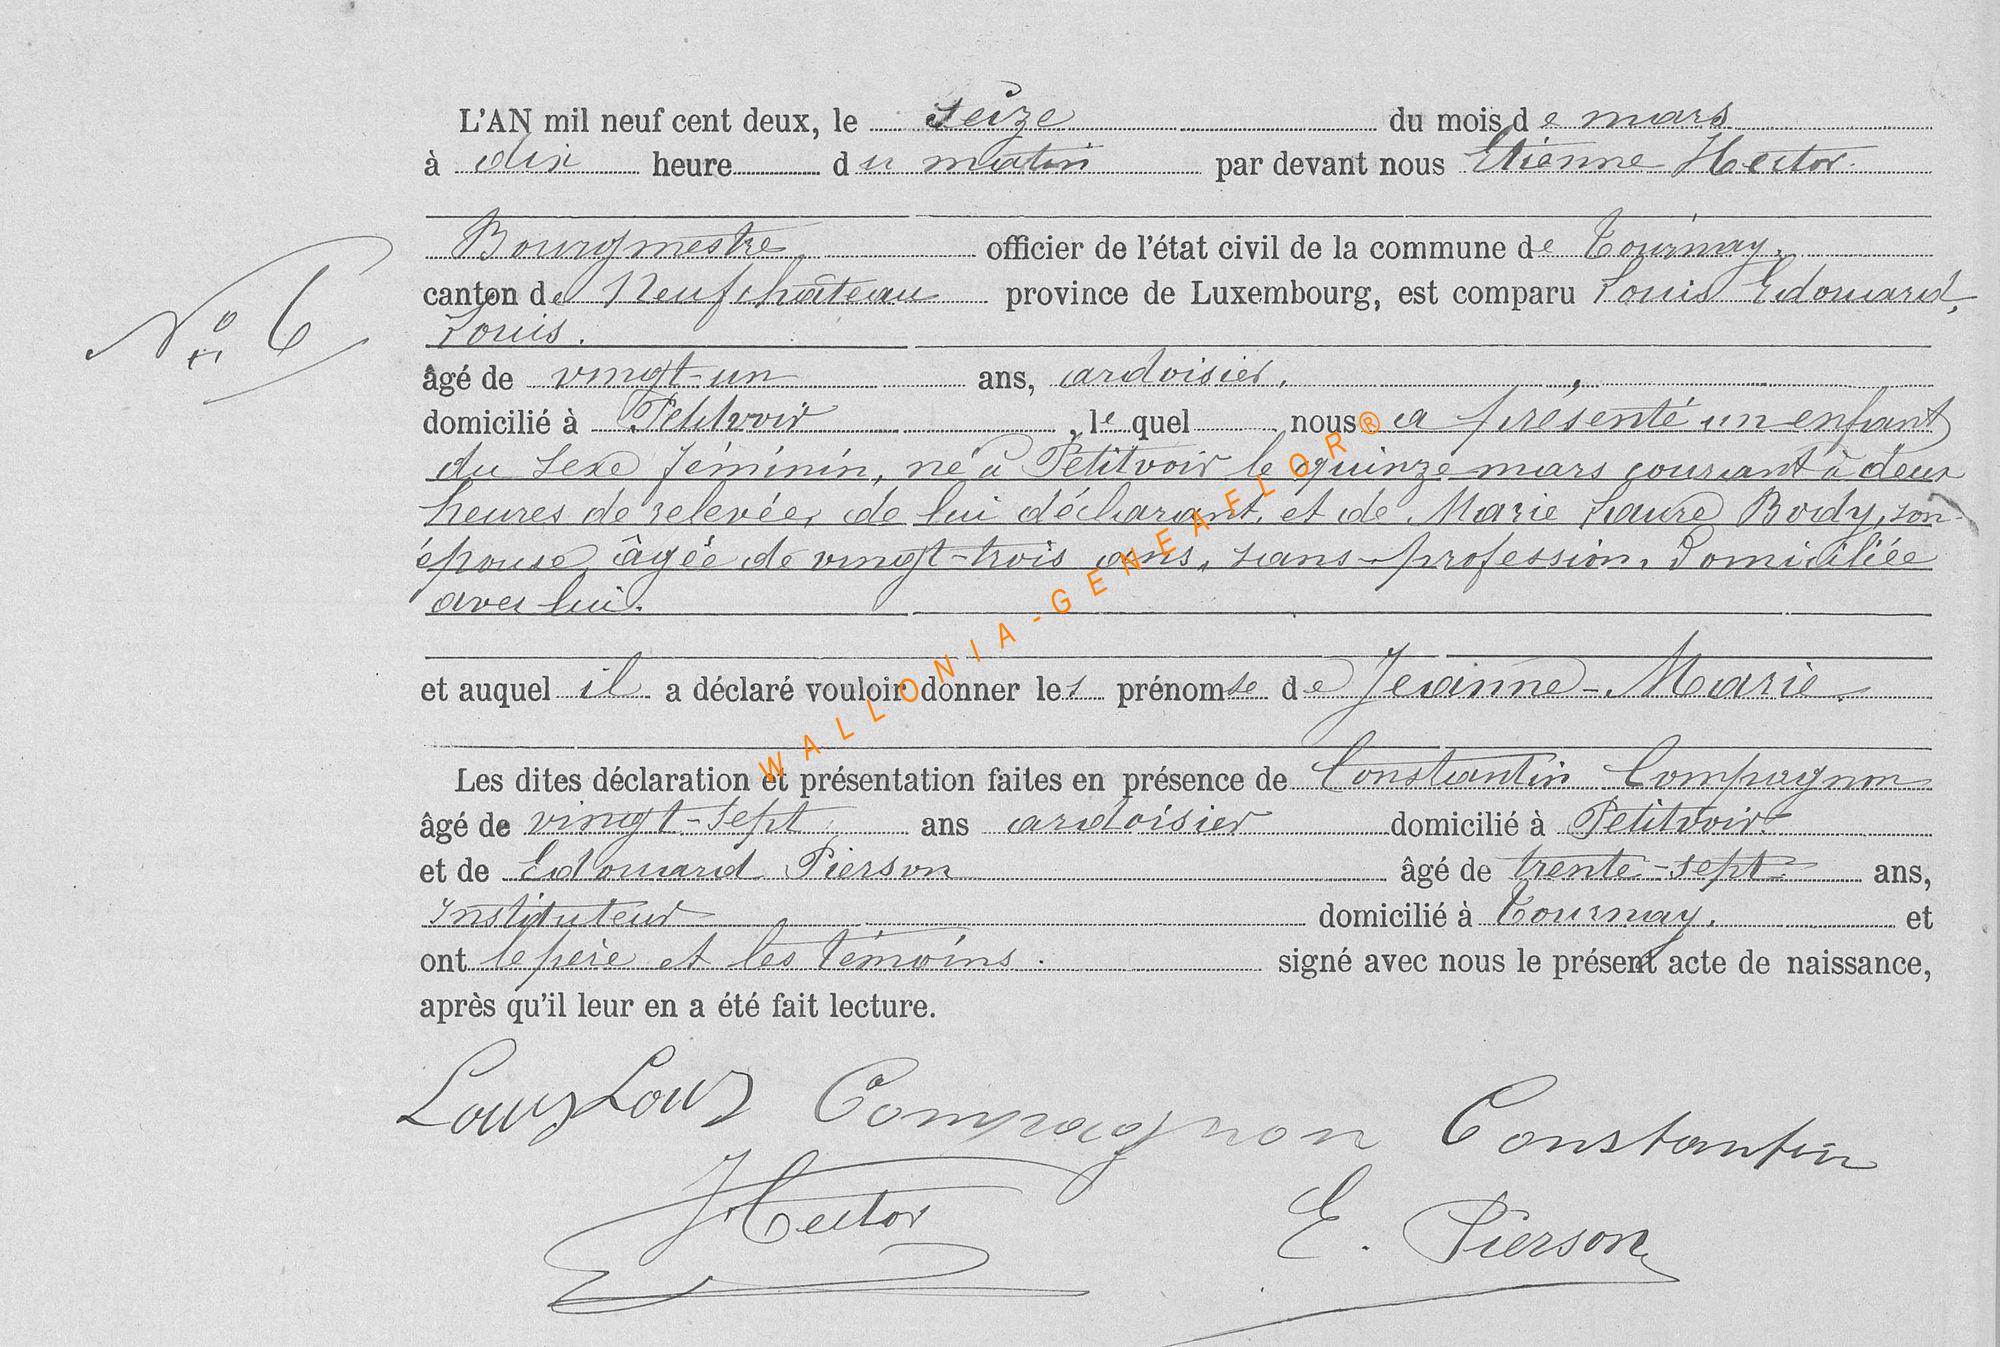 L'AN mil neuf cent deux, le seize du mois de mars
à dix heure du matin par devant nous Etienne Hector
Bourgmestre, officier de l'état civil de la commune de Tournay,
canton de Neufchâteau province de Luxembourg, est comparu Louis Edouard,
Louis.
N° 6
âgé de vingt-un ans, ardoisier,
domicilié à Petitvoir, lequel nous a présenté un enfant
du sexe féminin, né à Petitvoir le quinze mars courant à deux
heures de relevée, de lui déclarant, et de Marie Laure Body, son
épouse, âgée de vingt-trois ans, sans profession, domiciliée
avec lui.
et auquel il a déclaré vouloir donner les prénoms de Jeanne-Marie.
Les dites déclaration et présentation faites en présence de Constantin Compagnon
âgé de vingt-sept ans ardoisier domicilié à Petitvoir
et de Edouard Pierson âgé de trente-sept ans,
Instituteur domicilié à Tournay. et
ont le père et les témoins. signé avec nous le présent acte de naissance,
après qu'il leur en a été fait lecture.
Louis Louis Compagnon Constantin
Hector E. Pierson
WALLONIA-GENEAFLOR®